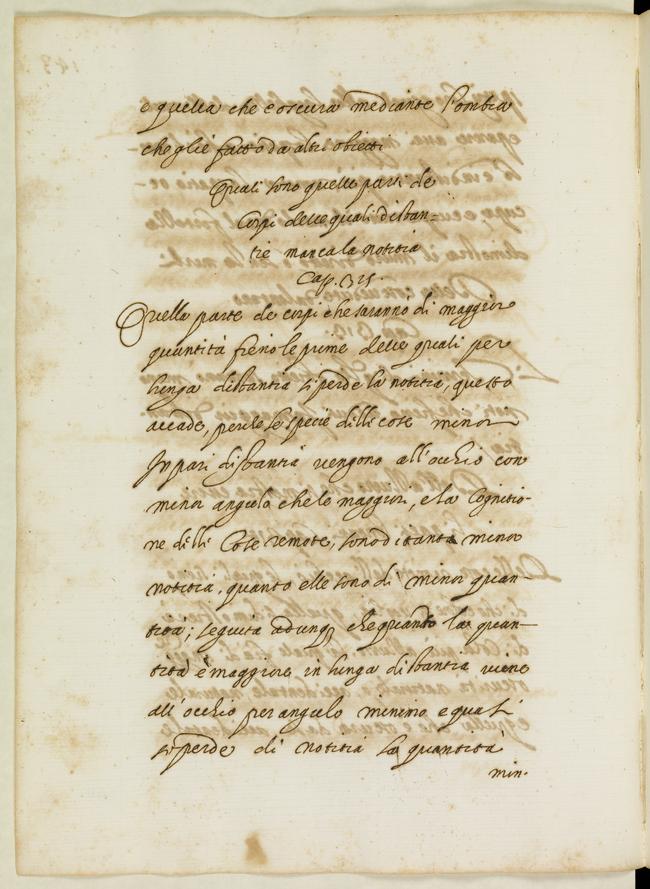 e quella che e oscura mediante l'ombra
che gli è fatto da altri obietti
Quali sono quelle parti de
Corpi delle quali distan-
tie manca la notitia
Cap. 315.
Quelle parte de corpi che saranno di maggior
quantità sieno le prime delle quali per
lunga distantia si perde la notitia, questo
accade, perche le specie delle cose minor
In pari distantia vengono all'occhio con
minor angulo che le maggiori, e la Cognitio-
ne delle Cose remote, sono di tanta minor
notitia, quanto elle sono di minor quan-
tita; seguita adunq, che quando la quan-
tità è maggiore in lunga distantia viene
all'occhio per angulo minimo e quasi
si perde di notitia la quantità
min.